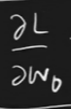 ∂L
∂W₀